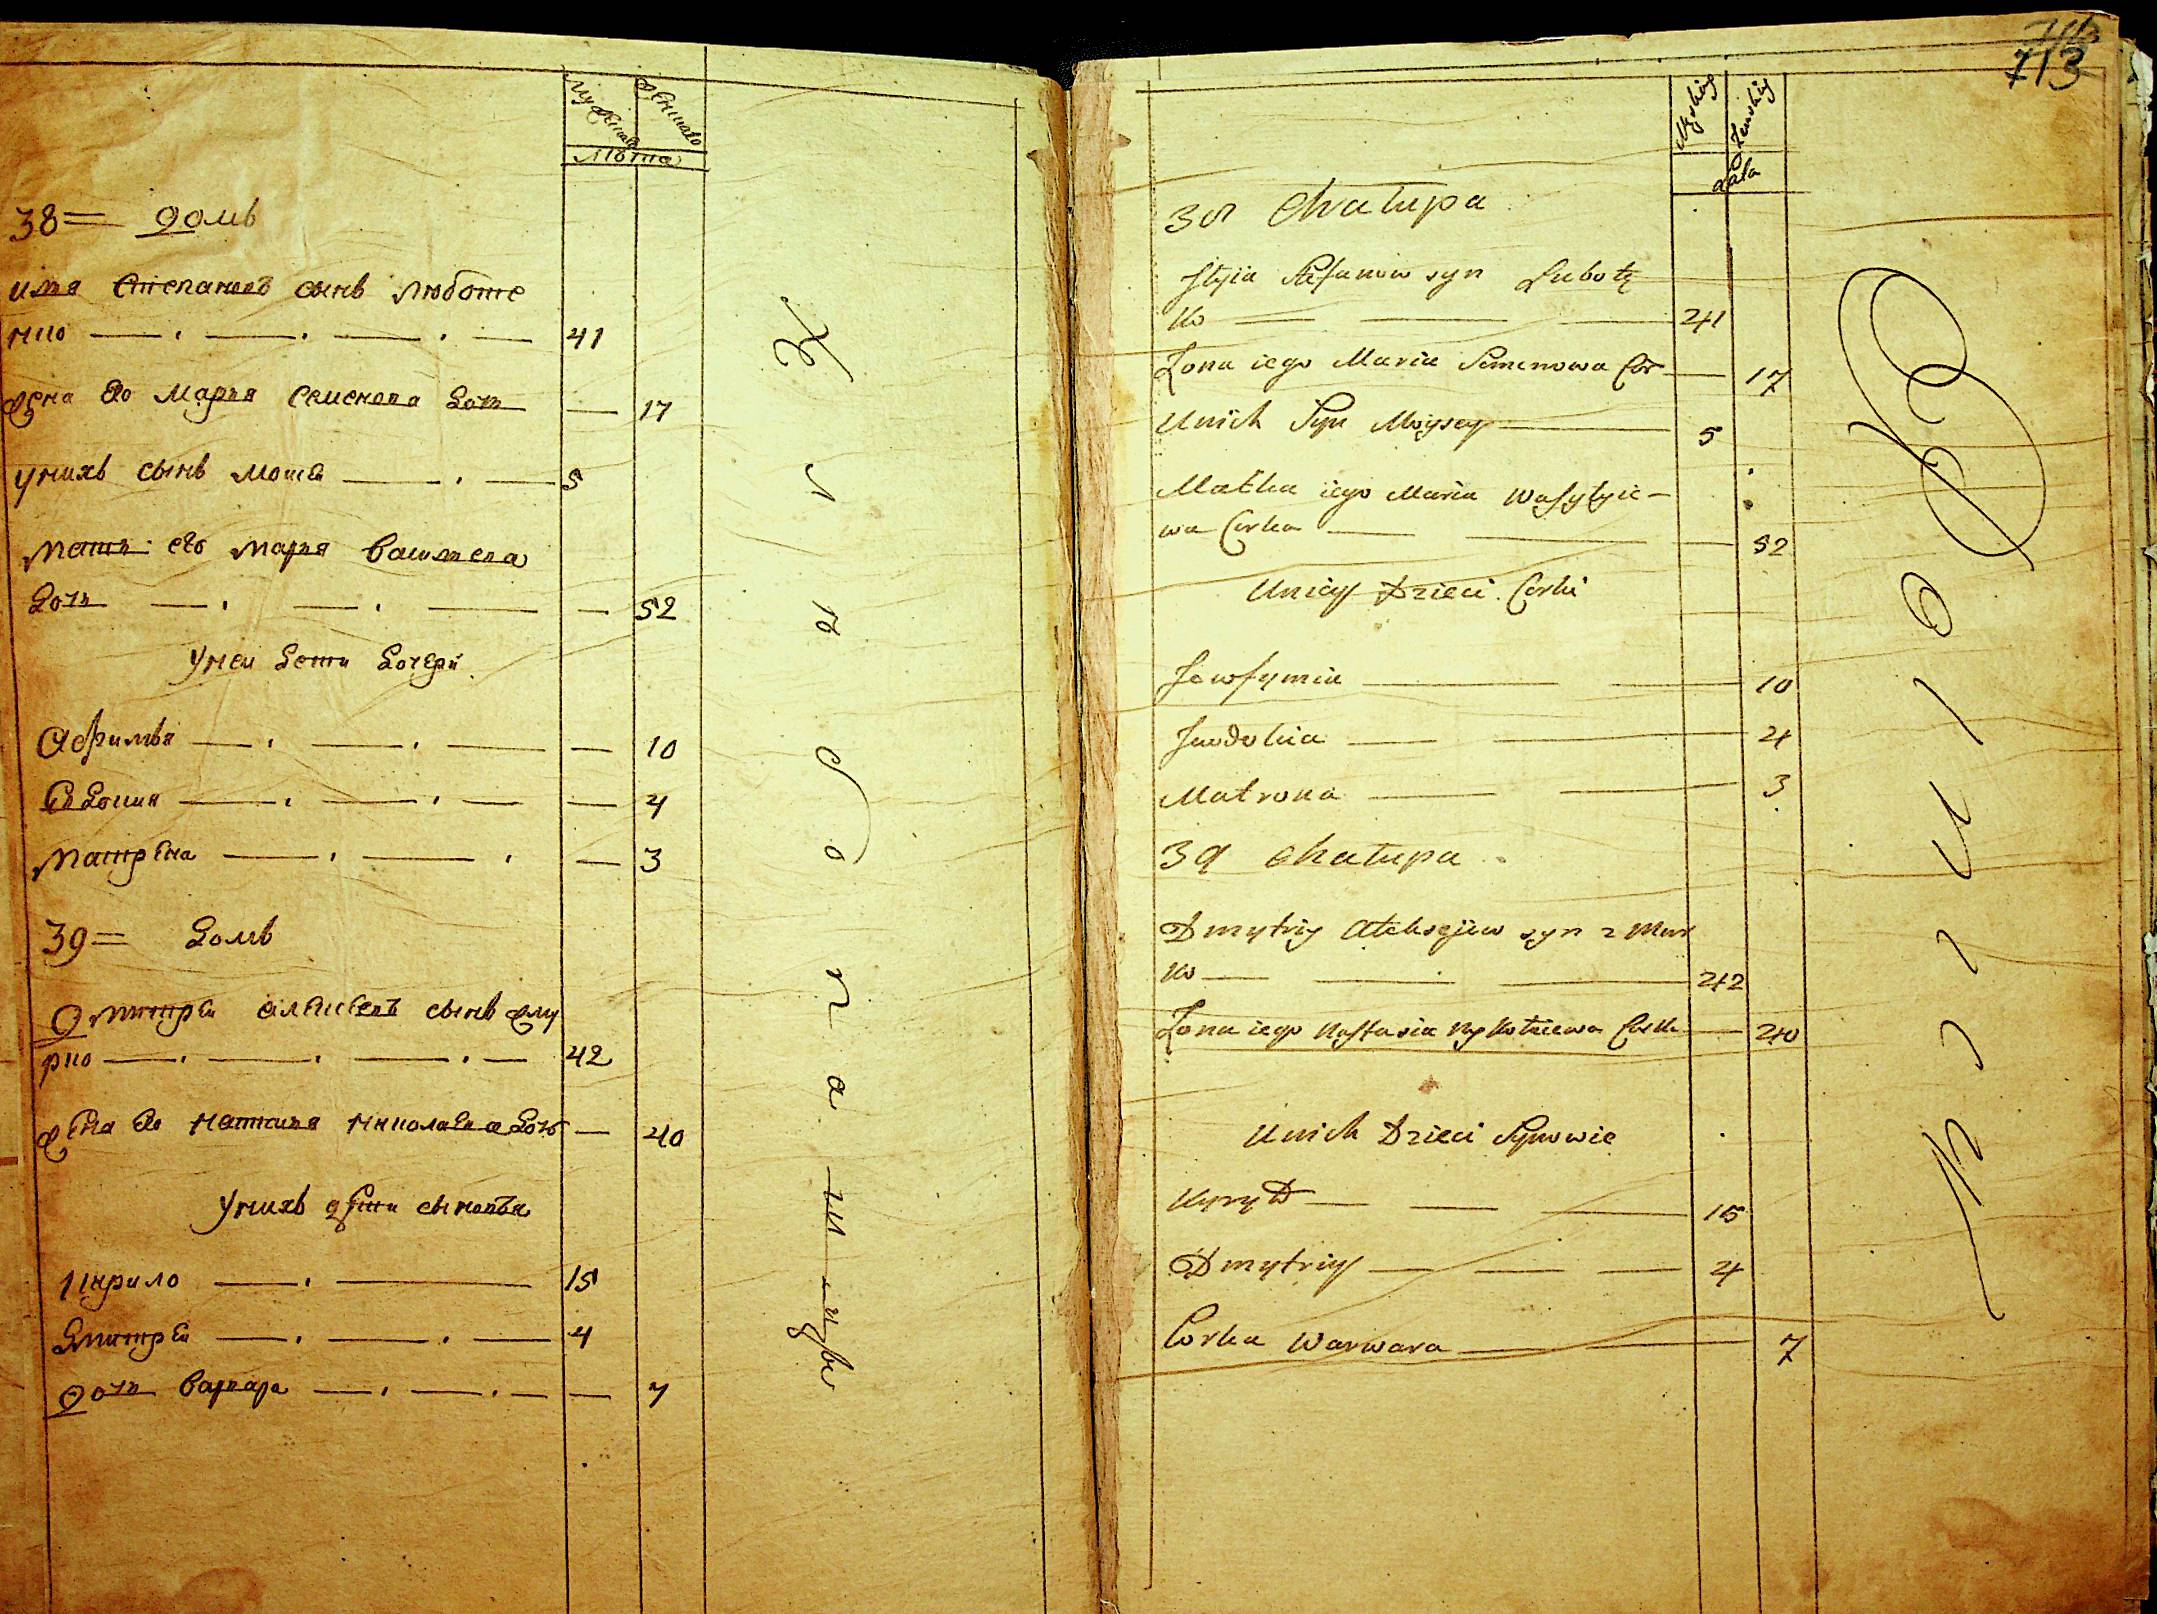 мужеска
женска
лѣта
38 = домъ
илья степановъ сынъ любоше
нко 41
жена его марья семенова дочь 17
у нихъ сынъ мошѣ 5
мать его марья василева
дочь 52
у неи дети дочери
афимья 10
евдокия 4
матрена 3
39 = домъ
дмитреи алексеевъ сынъ жму
рко 42
жена его настасья николаева дочь 40
у нихъ дети сыновья
кирило 15
дмитреи 4
дочь варвара 7
713
Męskiey
Żenskiey
lata
38 Chałupa
Jlyia Stefanow syn Lubotę
ko 41
Żona iego Maria Semenowa Cor 17
U nich Syn Moysey 5
Matka iego Maria Wasylyie-
wa Corka 52
U niey Dzieci Corki
Jewfymia 10
Jewdokia 4
Matrona 3
39 Chałupa
Dmytriy Aleksejiew syn z Mur
ko 42
Żona iego Nastasia Mykołaiewa Corka 40
U nich Dzieci Synowie
Kyryło 15
Dmytriy 4
Corka Warwara 7